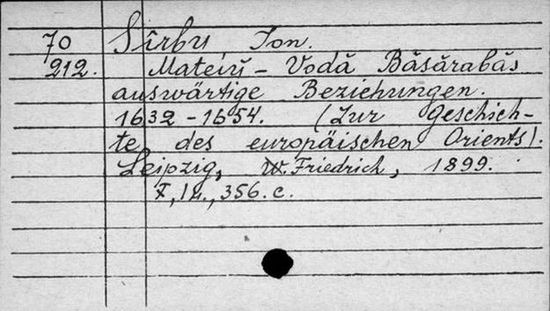 70 Sîrbu Ion.
212. Mateiŭ - Vodă Băsărabăs
auswärtige Beziehungen.
1632 - 1654. (Zur Geschich-
te des europäischen Orients).
Leipzig, W. Friedrich, 1899.
356. c.